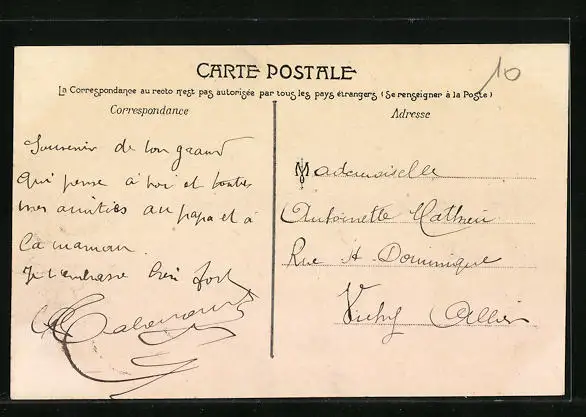 10
CARTE POSTALE
La Correspondance au recto n'est pas autorisée par tous les pays étrangers (Se renseigner à la Poste)
Correspondance
Adresse
Souvenir de ton grand
qui pense à toi et toutes
mes amitiés au papa et à
la maman
Je t'embrasse bien fort
Mademoiselle
Antoinette Mathieu
Rue St Dominique
Vichy Allier